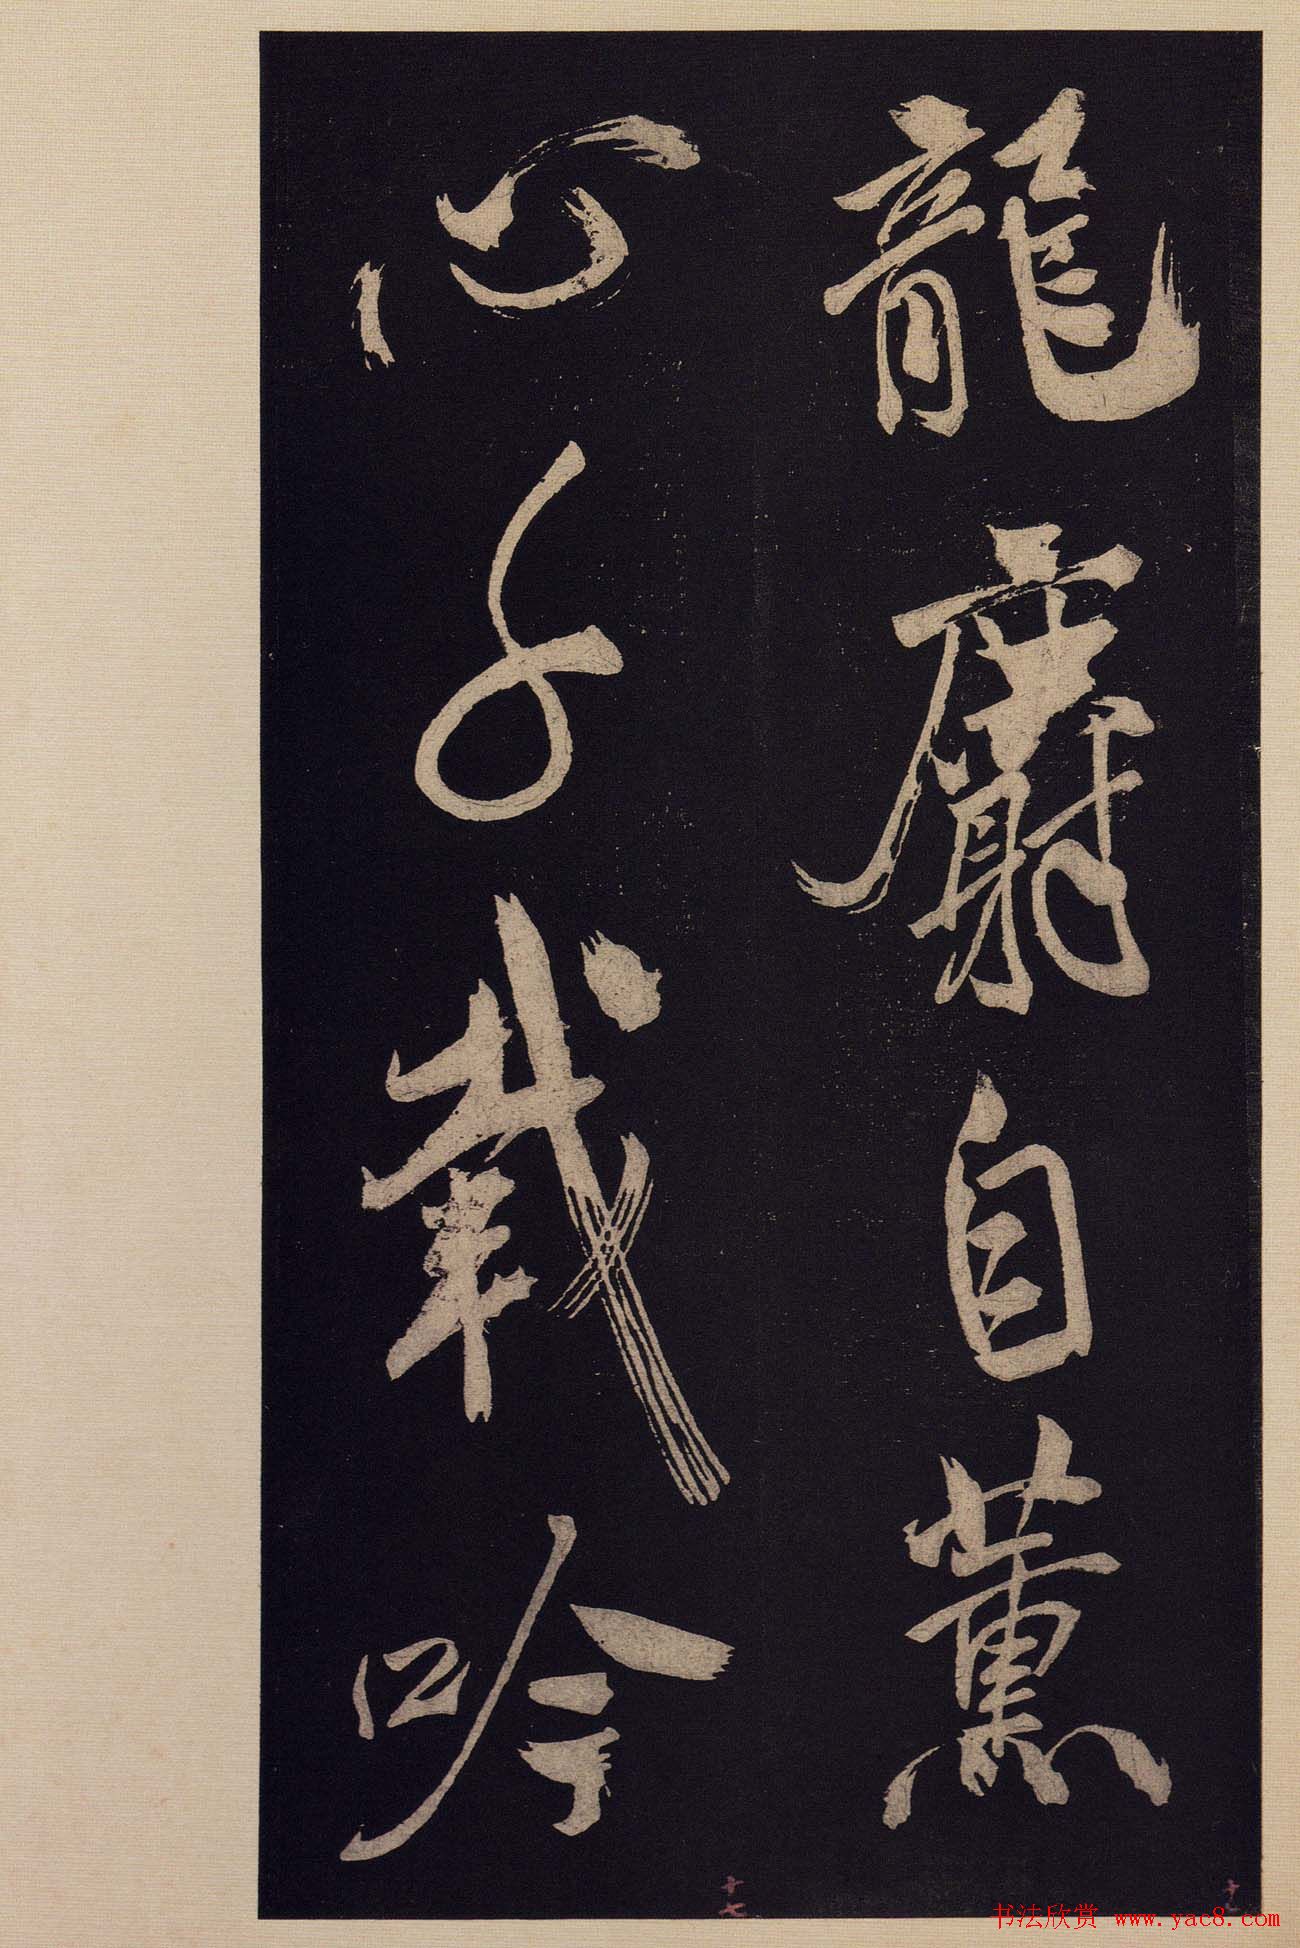 龍麝自薰
心載吟
十七
书法欣赏 www.yac8.com